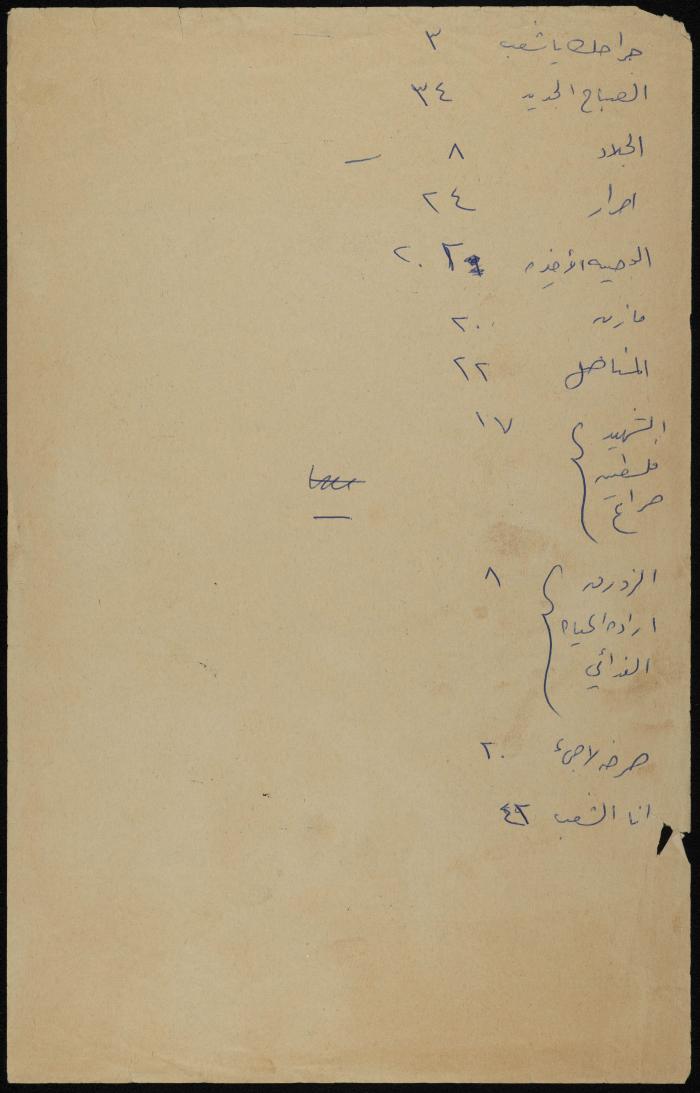 جراحك يا شعب ٣
الصباح الجديد ٣٤
الجلاد ٨ —
احرار ٢٤
الوصيه الأخيره ٢٠٢
مازن ٢٠
المناضل ٢٢
الشهيد ١٧
فلسطين
صراع
الزورق ٨
اراده الحياه
الفدائي
صرخه لاجئ ٢٠
انا الشعب ٤٢